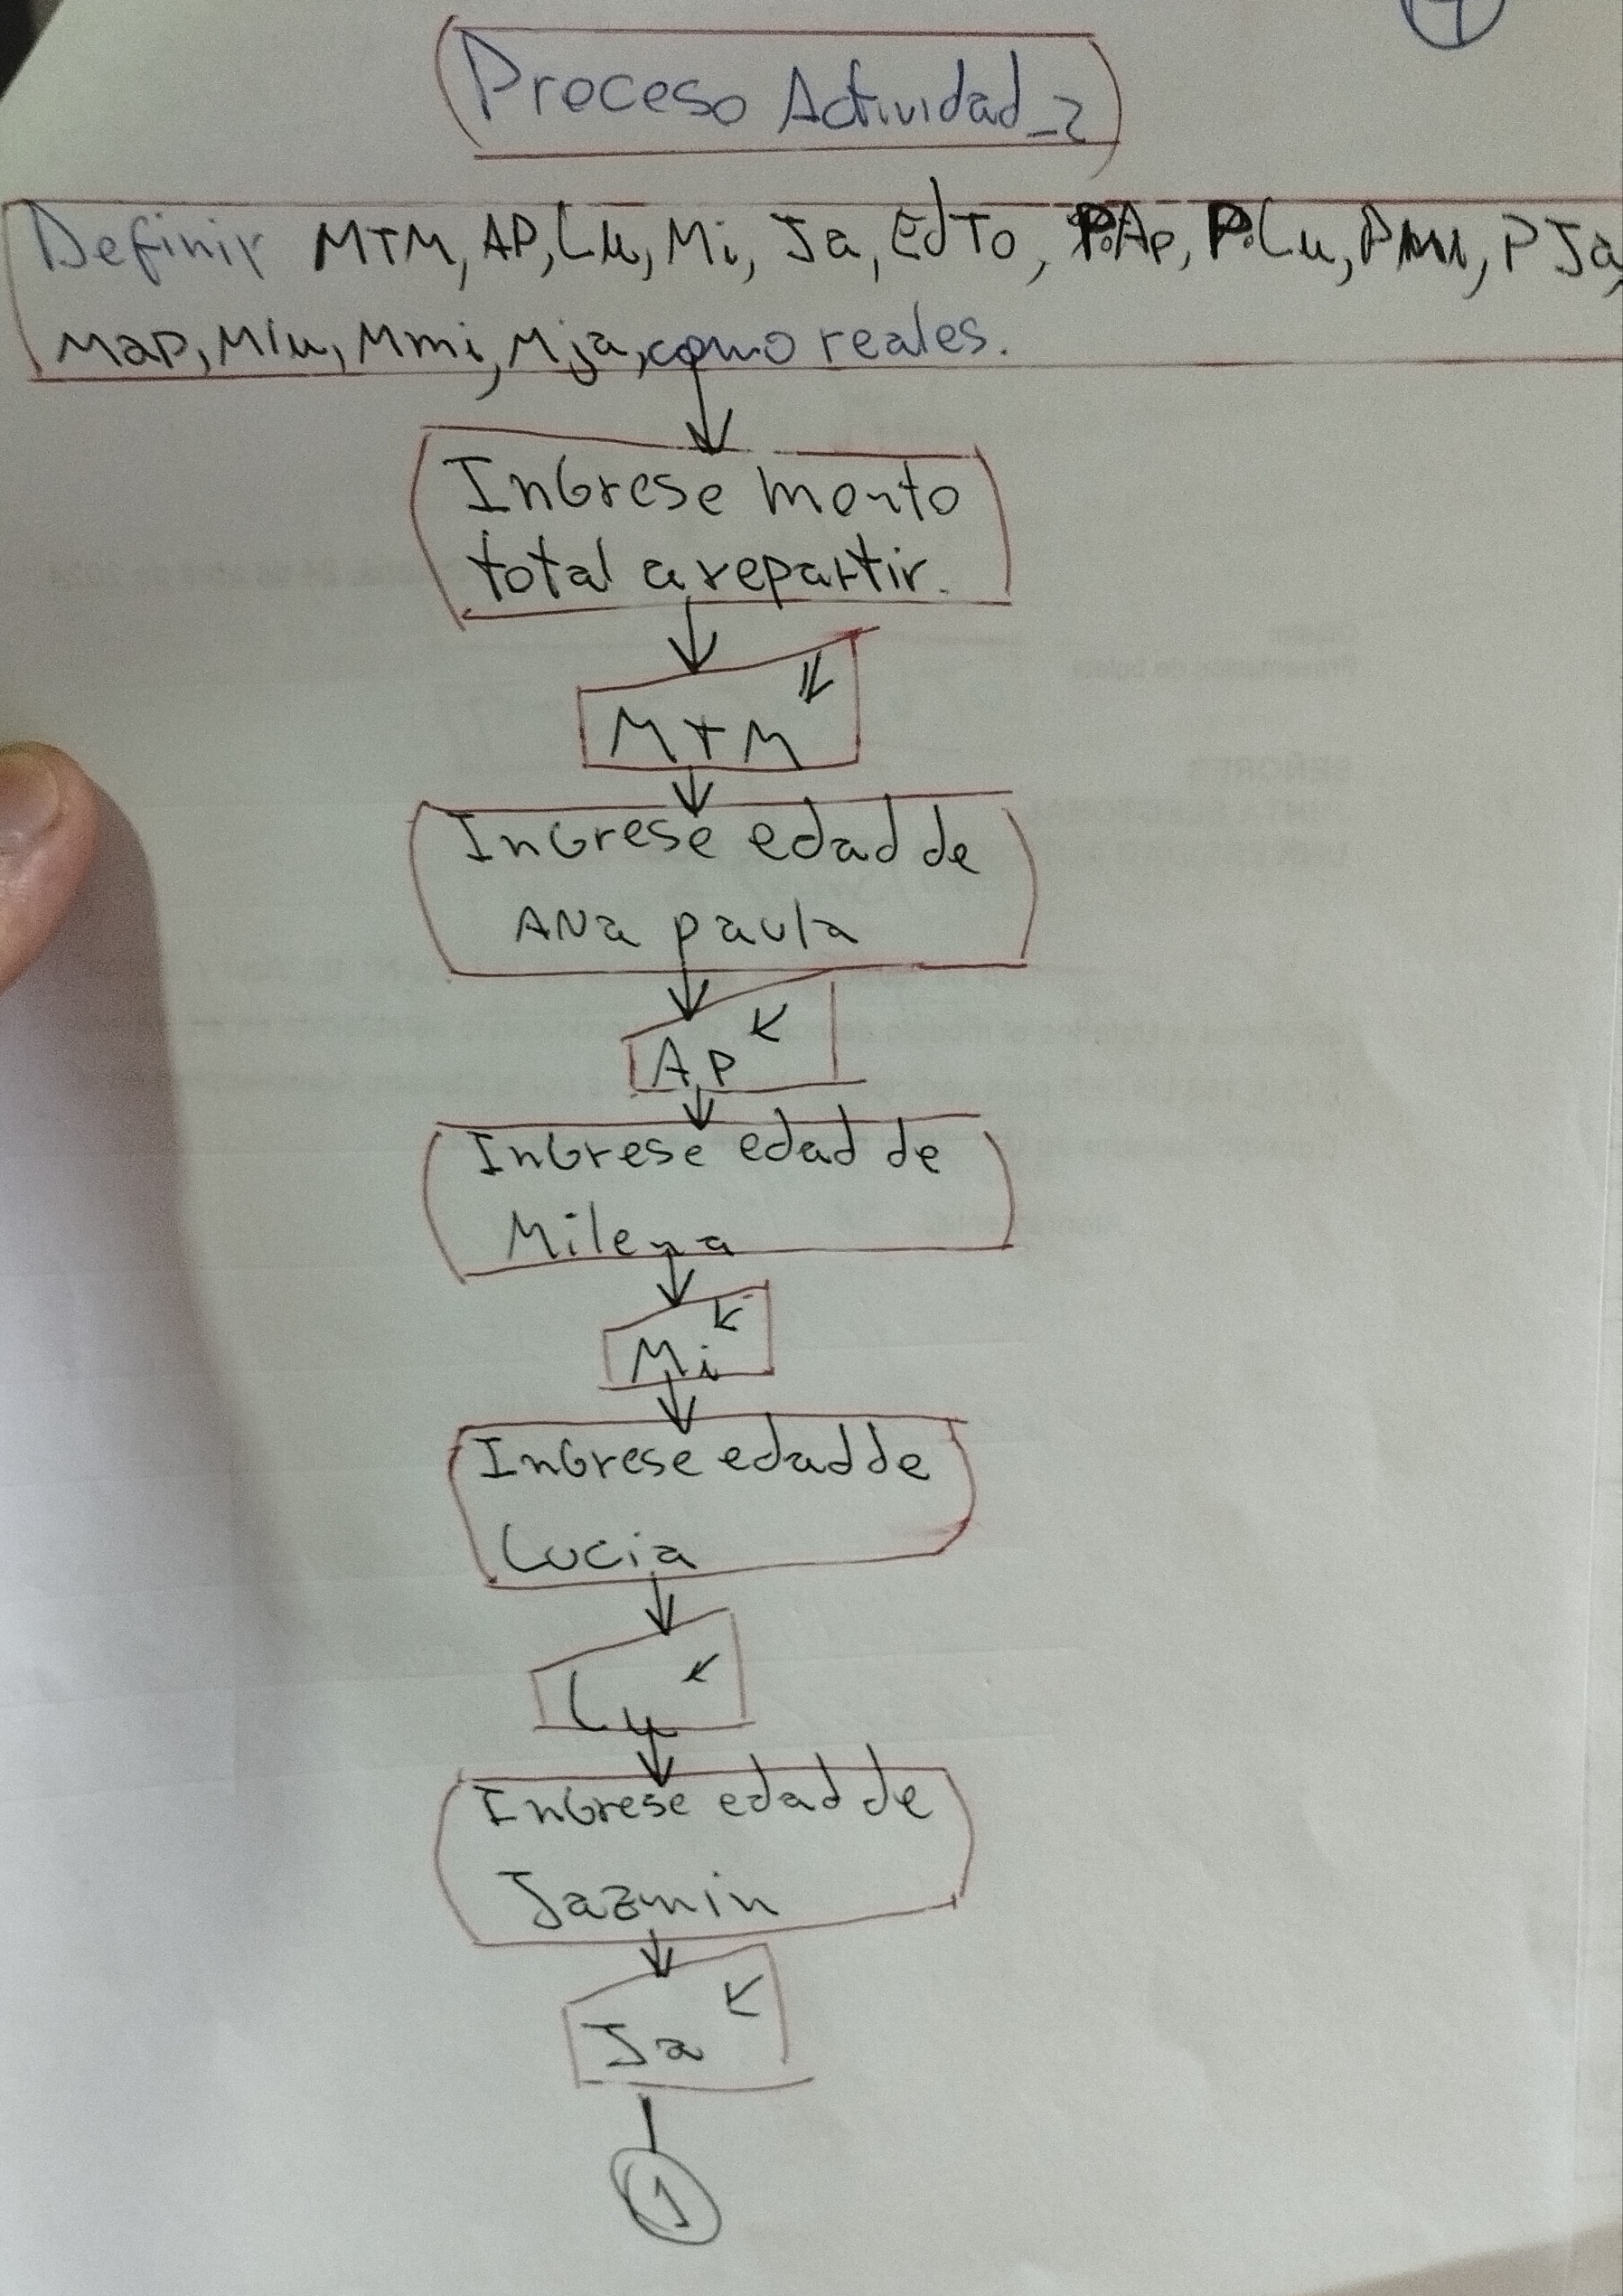 Proceso Actividad_2
Definir MTM, AP, Lu, Mi, Ja, EdTo, P.Ap, P.Lu, Pmi, PJa,
Map, Mlu, Mmi, Mja, como reales.
InGrese monto
total a repartir.
MTM
InGrese edad de
ANa paula
Ap
InGrese edad de
Milena
Mi
InGrese edad de
Lucia
Lu
InGrese edad de
Jazmin
Ja
1
SEÑORES